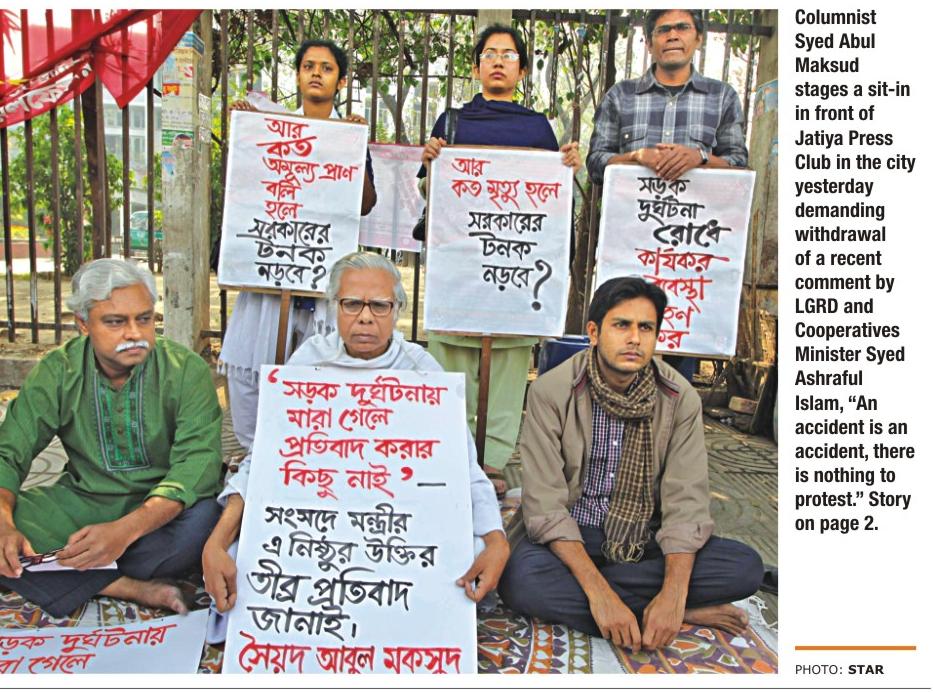 আর
কত
অমূল্য প্রাণ
বলি
হলে
সরকারের
টনক
নড়বে?
আর
কত মৃত্যু হলে
সরকারের
টনক
নড়বে?
সড়ক
দুর্ঘটনা
রোধে
কার্যকর
‘সড়ক দুর্ঘটনায়
মারা গেলে
প্রতিবাদ করার
কিছু নাই’—
সংসদে মন্ত্রীর
এ নিষ্ঠুর উক্তির
তীব্র প্রতিবাদ
জানাই।
সৈয়দ আবুল মকসুদ
দুর্ঘটনায়
গেলে
Columnist
Syed Abul
Maksud
stages a sit-in
in front of
Jatiya Press
Club in the city
yesterday
demanding
withdrawal
of a recent
comment by
LGRD and
Cooperatives
Minister Syed
Ashraful
Islam, “An
accident is an
accident, there
is nothing to
protest.” Story
on page 2.
PHOTO: STAR